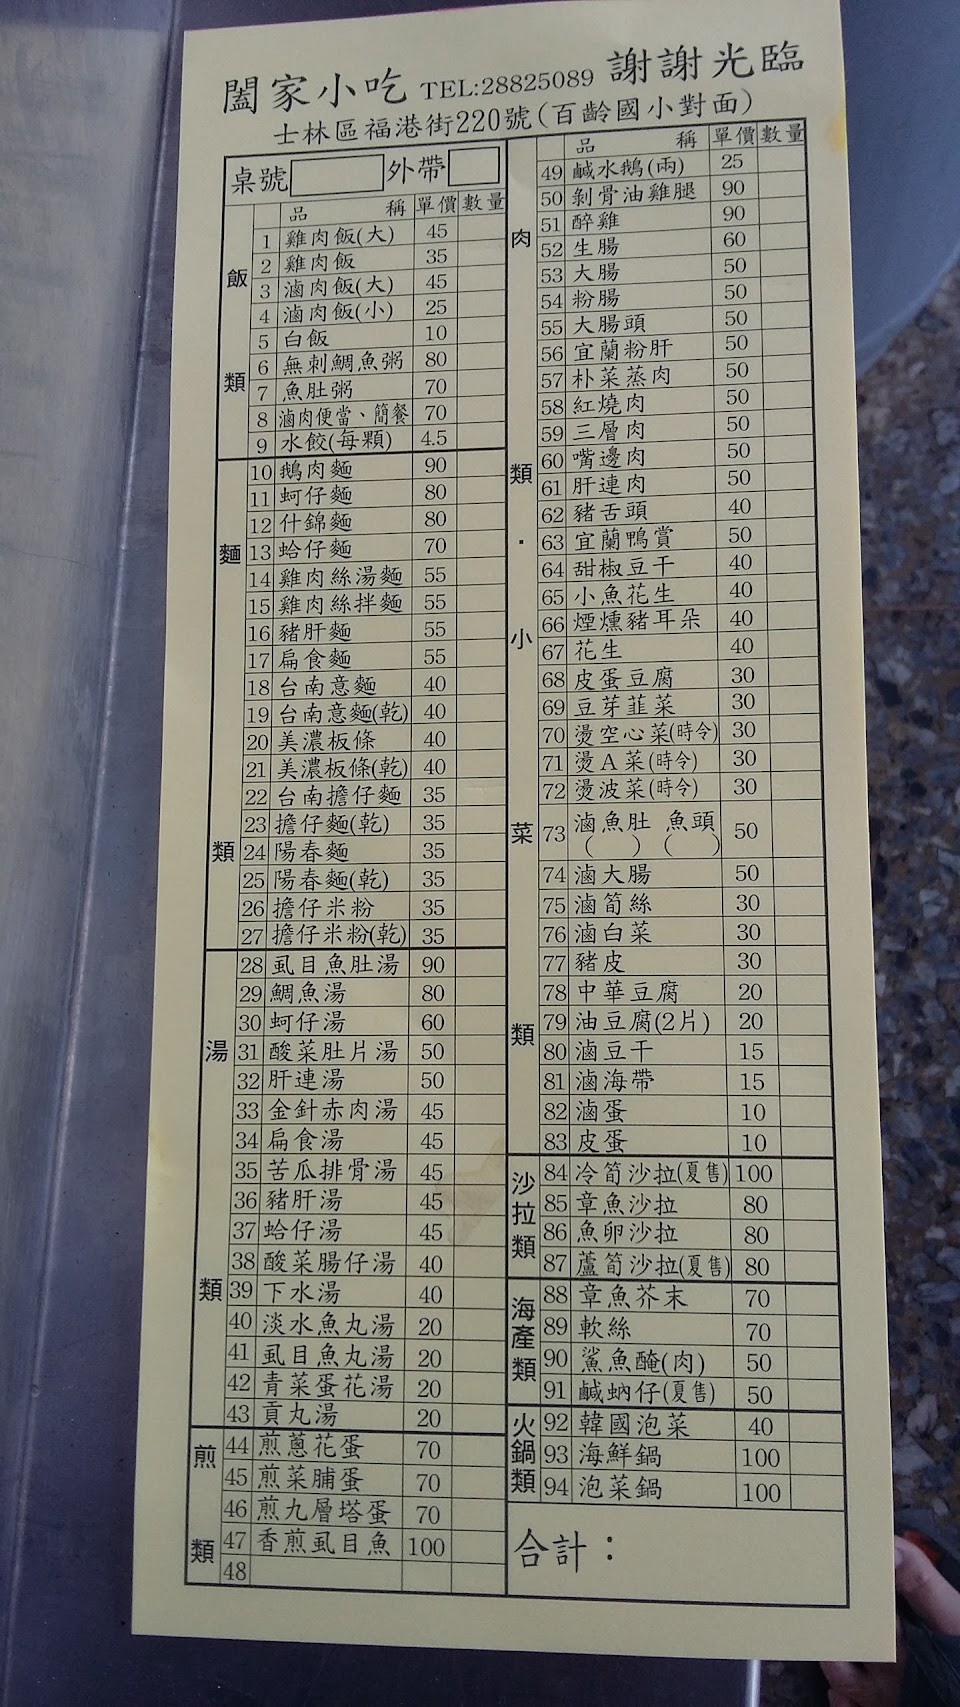 闔家小吃 TEL:28825089 謝謝光臨
士林區福港街220號(百齡國小對面)
桌號 外帶
品 稱 單價 數量
飯類
1 雞肉飯(大) 45
2 雞肉飯 35
3 滷肉飯(大) 45
4 滷肉飯(小) 25
5 白飯 10
6 無刺鯛魚粥 80
7 魚肚粥 70
8 滷肉便當、簡餐 70
9 水餃(每顆) 4.5
麵類
10 鵝肉麵 90
11 蚵仔麵 80
12 什錦麵 80
13 蛤仔麵 70
14 雞肉絲湯麵 55
15 雞肉絲拌麵 55
16 豬肝麵 55
17 扁食麵 55
18 台南意麵 40
19 台南意麵(乾) 40
20 美濃板條 40
21 美濃板條(乾) 40
22 台南擔仔麵 35
23 擔仔麵(乾) 35
24 陽春麵 35
25 陽春麵(乾) 35
26 擔仔米粉 35
27 擔仔米粉(乾) 35
湯類
28 虱目魚肚湯 90
29 鯛魚湯 80
30 蚵仔湯 60
31 酸菜肚片湯 50
32 肝連湯 50
33 金針赤肉湯 45
34 扁食湯 45
35 苦瓜排骨湯 45
36 豬肝湯 45
37 蛤仔湯 45
38 酸菜腸仔湯 40
39 下水湯 40
40 淡水魚丸湯 20
41 虱目魚丸湯 20
42 青菜蛋花湯 20
43 貢丸湯 20
煎類
44 煎蔥花蛋 70
45 煎菜脯蛋 70
46 煎九層塔蛋 70
47 香煎虱目魚 100
48
品 稱 單價 數量
肉類．小菜類
49 鹹水鵝(兩) 25
50 剝骨油雞腿 90
51 醉雞 90
52 生腸 60
53 大腸 50
54 粉腸 50
55 大腸頭 50
56 宜蘭粉肝 50
57 朴菜蒸肉 50
58 紅燒肉 50
59 三層肉 50
60 嘴邊肉 50
61 肝連肉 50
62 豬舌頭 40
63 宜蘭鴨賞 50
64 甜椒豆干 40
65 小魚花生 40
66 煙燻豬耳朵 40
67 花生 40
68 皮蛋豆腐 30
69 豆芽韮菜 30
70 燙空心菜(時令) 30
71 燙A菜(時令) 30
72 燙波菜(時令) 30
73 滷魚肚( ) 魚頭( ) 50
74 滷大腸 50
75 滷筍絲 30
76 滷白菜 30
77 豬皮 30
78 中華豆腐 20
79 油豆腐(2片) 20
80 滷豆干 15
81 滷海帶 15
82 滷蛋 10
83 皮蛋 10
沙拉類
84 冷筍沙拉(夏售) 100
85 章魚沙拉 80
86 魚卵沙拉 80
87 蘆筍沙拉(夏售) 80
海產類
88 章魚芥末 70
89 軟絲 70
90 鯊魚醃(肉) 50
91 鹹蚋仔(夏售) 50
火鍋類
92 韓國泡菜 40
93 海鮮鍋 100
94 泡菜鍋 100
合計：